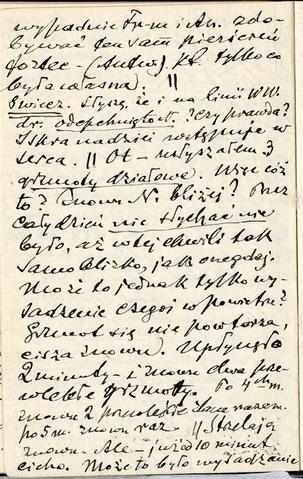 wypadnie Fr-m i An. zdo-
bywać ten sam pierścień
fortec — (Antw.) kt. tylko co
była własna. ||
Świcz. Słysz, że i na linii W.W.
dr. odepchnięto N. ? Czy prawda?
Iskra nadziei wstępuje w
serca. || Ot — usłyszałem 3
grzmoty działowe. Więc cóż
to? Znowu N. bliżej? Przez
cały dzień nic słychać nie
było, aż w tej chwili tak
samo blisko, jak onegdaj.
Może to jednak tylko wy-
sadzenie czegoś w powietrze?
Grzmot się nie powtarza,
cisza znowu. Upłynęło
2 minuty — i znowu dwa prze-
wlekłe grzmoty. Po 4 m.
znowu 2 przewlekłe razem.
po 5 m. znowu raz || Strzelają
znowu. Ale — już 10 minut
cicho. Może to było wysadzanie